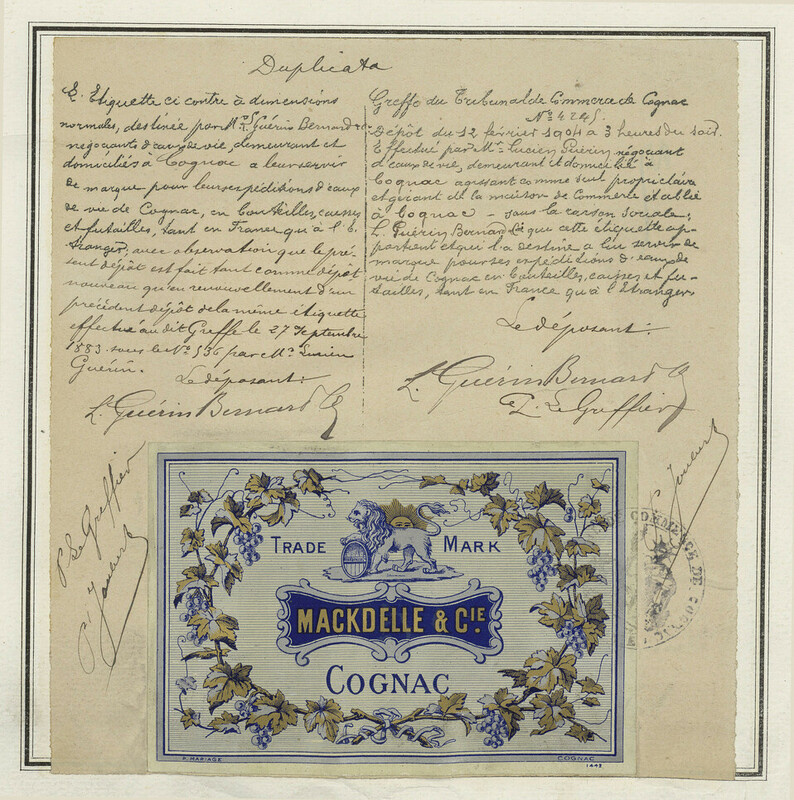 Duplicata
E. Etiquette ci contre à dimensions
normales, destinée par Mrs L. Guérin Bernard & Cie
négociants d'eaux de vie, demeurant et
domiciliés à Cognac a leur servir
de marque pour leurs expéditions d'eaux
de vie de Cognac, en bouteilles, caisses
et futailles, tant en France qu'à l'E-
tranger; avec observation que le pré-
sent dépôt est fait tant comme dépôt
nouveau qu'en renouvellement d'un
précédent dépôt de la même étiquette
effectué au dit Greffe le 27 Septembre
1883 sous le No 536 par Mr Lucien
Guérin.
Le déposant:
L. Guérin Bernard Cie
Greffe du Tribunal de Commerce de Cognac
No 4245.
Dépôt du 12 février 1904 à 3 heures du soir.
Effectué par Mr Lucien Guérin négociant
d'eaux de vie, demeurant et domicilié à
Cognac agissant comme seul propriétaire
et gérant de la maison de Commerce établie
à Cognac - sous la raison sociale:
L. Guérin Bernard & Cie que cette étiquette ap-
partient et qu'il l'a destinée à lui servir de
marque pour ses expéditions d'eaux de
vie de Cognac en bouteilles, caisses et fu-
tailles, tant en France qu'à l'Etranger
Le déposant:
L. Guérin Bernard Cie
P. Le Greffier
P. Le Greffier
TRADE MARK
MACKDELLE & CIE.
COGNAC
P. MARIAGE
COGNAC
1442
COMMERCE DE COGNAC